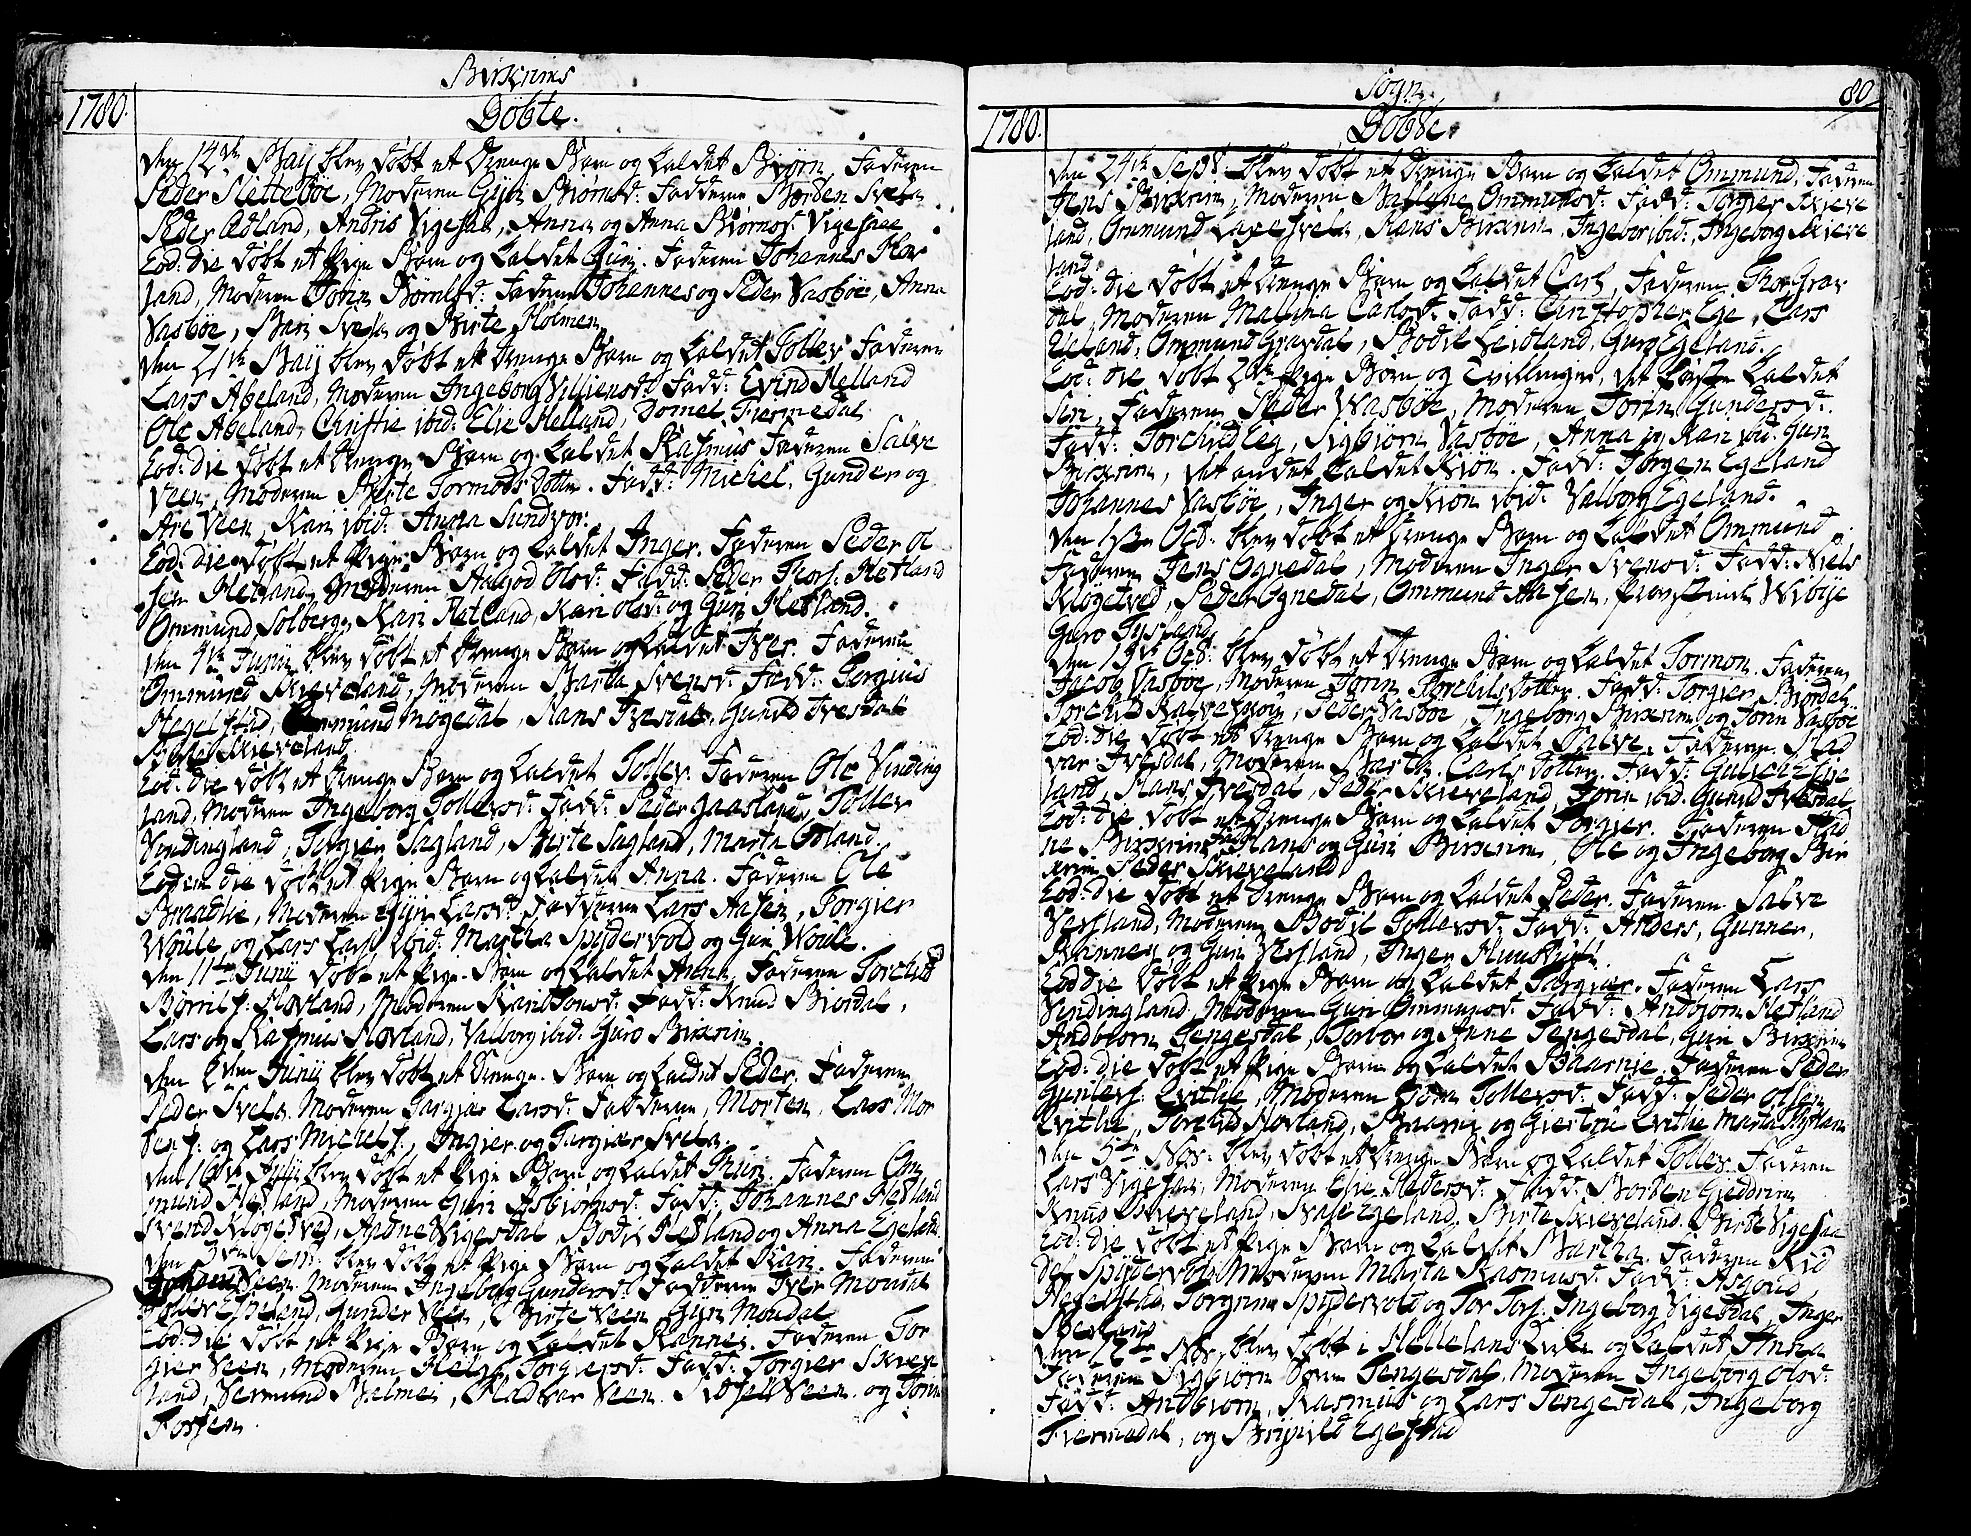 Birkrims
1780.
Döbte.
den 14de May blev döbt et Drenge Barn og kaldet Biörn, Faderen
Peder Sletteböe, Moderen Gijri Biörnsd: Fadderne Morten Svela
Peder Ædland, Andris Vigesaa, Anna og Anna Biörnsd. Vigesaae
Eod: die döbt et Pige Barn og kaldet Guri. Faderen Johannes Hov
land, Moderen Jorin Börrilsd: Fadderne Johannes og Peder Vasböe, Anna
Vasböe, Mari Svela og Birte Holmen
den 21de May blev döbt et Drenge Barn og kaldet Tollev Faderen
Lars Aběland, Moderen Ingeborg Villumsd: Fadd: Evind Helland
Ole Abeland, Christie ibid: Elie Helland, Dorret Fiermedal
Eod: die döbt et Drenge Barn og kaldet Rasmus Faderen Salve
Veen, Moderen Birte Tormods Dotter. Fadd: Michel, Gunder og
Are Veen, Kari ibid: Anna Sundvor.
Eod: die döbt et Pige Barn og kaldet Inger. Faderen Peder Ol
sen Hetland, Moderen Aagod Olsd: Fadd: Peder Thors: Hetland
Ommund Solberg, Kari Hetland, Kari Olsd: og Guri Hetland.
den 4de Junii blev döbt et Drenge Barn og kaldet Iver. Faderen
Ommund Skieveland, Moderen Marta Svensd: Fadd: Torgius
Hegelstad, Ommund Mögedal, Hans Ivesdal, Gunild Ivesdal
Skieveland.
Eod: die döbt et Drenge Barn og kaldet Tollev. Faderen Ole Vinding
land, Moderen Ingeborg Tollevsd: Fadd: Peder Gaasland, Tollev
Vindingland, Torgier Sagland, Birte Sagland, Marta Orland.
Eodem die döbt et Pige Barn og kaldet Anna. Faderen Ole
Braadlie, Moderen Siri Larsd: Fadderne Lars Aasen, Torgier
Woule og Lars Lars: ibid: Martha Spydervold og Guri Woule.
den 11te Junii döbt et Pige Barn og kaldet Anna, Faderen Torchild
Börrils: Hovland, Moderen Kari Tonsd: Fadd: Knud Biordal,
Lars og Rasmus Hovland, Valborg ibid: Guro Birkrim
den Junii blev döbt et Drenge Barn og kaldet Peder. Faderen
Peder Svela, Moderen Targier Larsd: Fadderne, Morten, Lars Mor
tens: og Lars Michels:, Ingier og Targier Svela.
den 16de Julii blev döbt et Pige Barn og kaldet Faderen Om
mund Hetland, Moderen Guri Asbiörnsd: Fadd: Johannes Hetland
Svend Klogetved, Aadne Vigesdal, Bodil Hetland og Anna Egeland.
den 3die Sept: blev döbt et Pige Barn og kaldet Kari. Faderen
Veen. Moderen Ingeborg Gundersd: Fadderne Iver Moudal
Tollev Espeland, Gunder Veen, Birte Veen, Guri Moudal
Eod: die döbt et Pige Barn og kaldet Rannei. Faderen Tor
gier Veen, Moderen Helge Torgiersd: Fadd: Torgier Skieve
land, Vermund Malmei, Hadvar Veen, Sidsell Veen og Torin
Tosten.
Sogn
80
1780.
Döbte.
den 24de Sept: blev döbt et Drenge Barn og kaldet Ommund, Faderen
Jens Birkrim, Moderen Mallene Ommunsd: Fadd: Torgier Skieve
land, Ommund Laxesvela, Hans Birkrim, Ingebor ibid:, Ingeborg Skieve
land.
Eod: die döbt et Drenge Barn og kaldet Carl, Faderen Thor Grav
dal, Moderen Malena Carlsd: Fadd: Christopher Ege, Lars
Ueland, Ommund Gravdal, Bodil Leidland, Guro Egeland.
Eod: die döbt 2de Pige Börn og Tvillinger, det förste kaldet
Siri, Faderen Peder Wasböe, Moderen Torin Gundersd:
Fadd: Torchild Eeg, Sigbiörn Vasböe, Anna og Kari ibid: Guri
Birkrim, det andet kaldet Kiön. Fadd: Torgen Egeland
Johannes Vasböe, Inger og Kiön ibid: Valborg Egeland.
den 1ste Oct: blev döbt et Drenge Barn og kaldet Ommund
Faderen Jens Ognedal, Moderen Inger Svensd: Fadd: Niels
Klogetved, Peder Ognedal, Ommund Aasen, Wibye
Guro Tysland
den 15de Oct: blev döbt et Drenge Barn og kaldet Tormon. Faderen
Jacob Vasböe, Moderen Torin Torchilsdotter. Fadd: Torgier Biordal
Torchild Kalvekiön, Peder Vasböe, Ingeborg Birkrim og Torin Vasböe
Eod: die döbt et Drenge Barn og kaldet Salve. Faderen Had
var Ivesdal, Moderen Marta Carls dotter. Fadd: Gulich Espe
land, Hans Ivesdal, Peder Skieveland, Torin ibid: Gunild Ivesdal
Eod: die döbt et Drenge Barn og kaldet Torgier. Faderen Aad
ne Birkrim, Fadd: Hans og Guri Birkrim, Ole og Ingeborg Bir
krim Peder Skieveland
Eod: die döbt et Drenge Barn og kaldet Peder. Faderen Salve
Vasland, Moderen Bodil Tollevsd: Fadd: Anders, Gunner,
Rannei og Guri Vasland, Inger
Eod die döbt et Pige Barn og kaldet Targier. Faderen Lars
Vindingland, Moderen Guri Ommunsd: Fadd: Andbiörn Hetland
Andbiorn Tengesdal, Torbor og Anne Tengesdal, Guri Birkrim
Eod: die döbt et Pige Barn og kaldet Baarnie. Faderen Peder
Gunlevs: Qvitlie, Moderen Torin Tollevsd: Fadd: Peder Olsen
Qvitlie, Torchild Hovland, Baarni og Giertru Qvitlie Marta
den 5te Nov: blev döbt et Drenge Barn og kaldet Tollev. Faderen
Lars Vigesaa, Moderen Elie Pedersd: Fadd: Morten Giedrem
Knud Skieveland, Svale Egeland, Birte Skieveland. Birte Vigesaa
Eod: die döbt et Pige Barn og kaldet Martha. Faderen Rid
del Spydervold Moderen Marta Rasmusd: Fadd: Asgoud
Hegelstad, Torgrim Spydervold og Tor Tors: Ingeborg Vigesdal, Inger
Skieveland
den 12te Nov: blev döbt i Hellelands Kirke og kaldet Anna
Faderen Sigbiörn Tengesdal, Moderen Ingeborg Olsd:
Fadd: Andbiörn, Rasmus og Lars Tengesdal, Ingeborg
Fiermedal, og Egestad